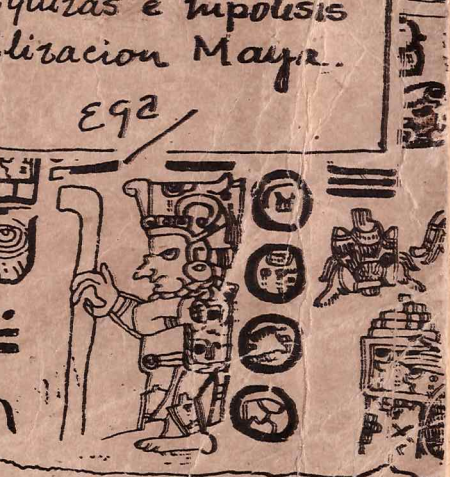 squizas e hipotesis
lizacion Maya.